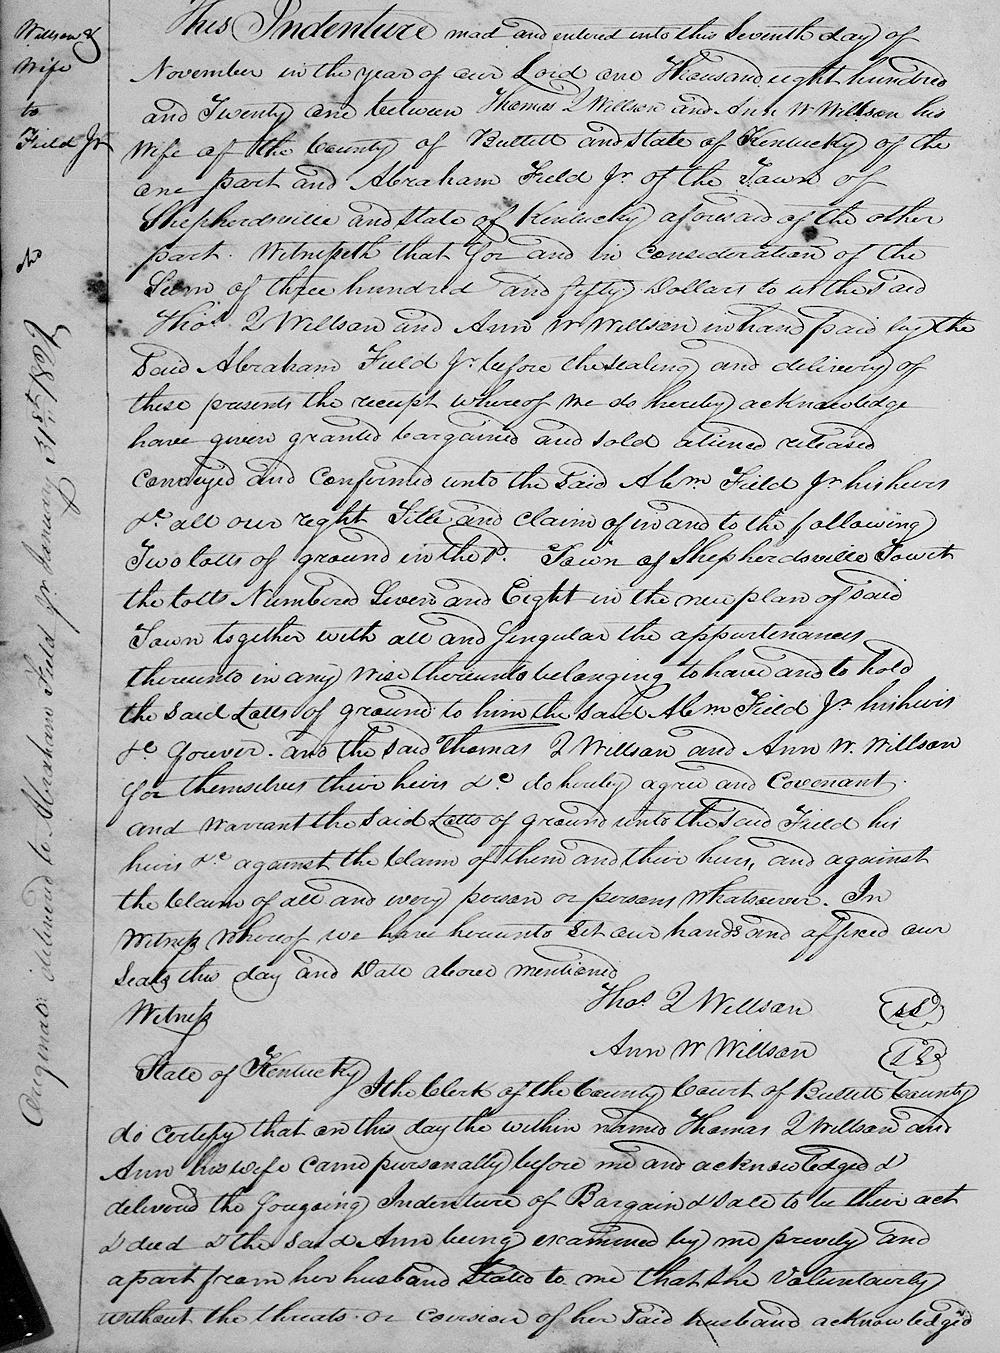 Willson &
Wife
to
Field Jr
This Indenture mad and entered into this Seventh day of
November in the year of our Lord one Thousand eight hundred
and Twenty one between Thomas Q Willson and Ann W Willson his
Wife of the County of Bullett and State of Kentucky of the
one part and Abraham Field Jr of the Town of
Shepherdsville and State of Kentucky aforesaid of the other
part. Witnesseth that for and in consideration of the
Sum of three hundred and fifty Dollars to us the said
Thos. Q Willson and Ann W Willson in hand paid by the
Said Abraham Field Jr before the sealing and delivery of
these presents the receipt whereof we do hereby acknowledge
have given granted bargained and sold aliened released
Conveyed and Confirmed unto the said Abm Field Jr his heirs
&c all our right Title and claim of in and to the following
Two lotts of ground in the sd. Town of Shepherdsville Towit
the lotts Numbered Seven and Eight in the new plan of said
Town together with all and Singular the appurtenances
thereunto in any wise thereunto belonging to have and to hold
the said Lotts of ground to him the said Abm Field Jr his heirs
&c forever. and the said Thomas Q Willson and Ann W. Willson
for themselves their heirs &c do hereby agree and Covenant
and Warrant the said Lotts of ground unto the said Field his
heirs &c against the Claim of them and their heirs, and against
the Claim of all and every person or persons Whatsoever. In
Witness Whereof we have hereunto Set our hands and affixed our
Seals this day and Date above mentioned
Witness Thos Q Willson
Ann W Willson
State of Kentucky I the Clerk of the County Court of Bullett County
do certify that on this day the within named Thomas Q Willson and
Ann his wife came personally before me and acknowledged &
delivered the forgoing Indenture of Bargain & Sale to be their act
& deed & the said Ann being examined by me previly and
apart from her husband Stated to me that she Voluntairly
without the threats or coersion of her said husband acknowledged
Original delivered to Abraham Field Jr January 31st